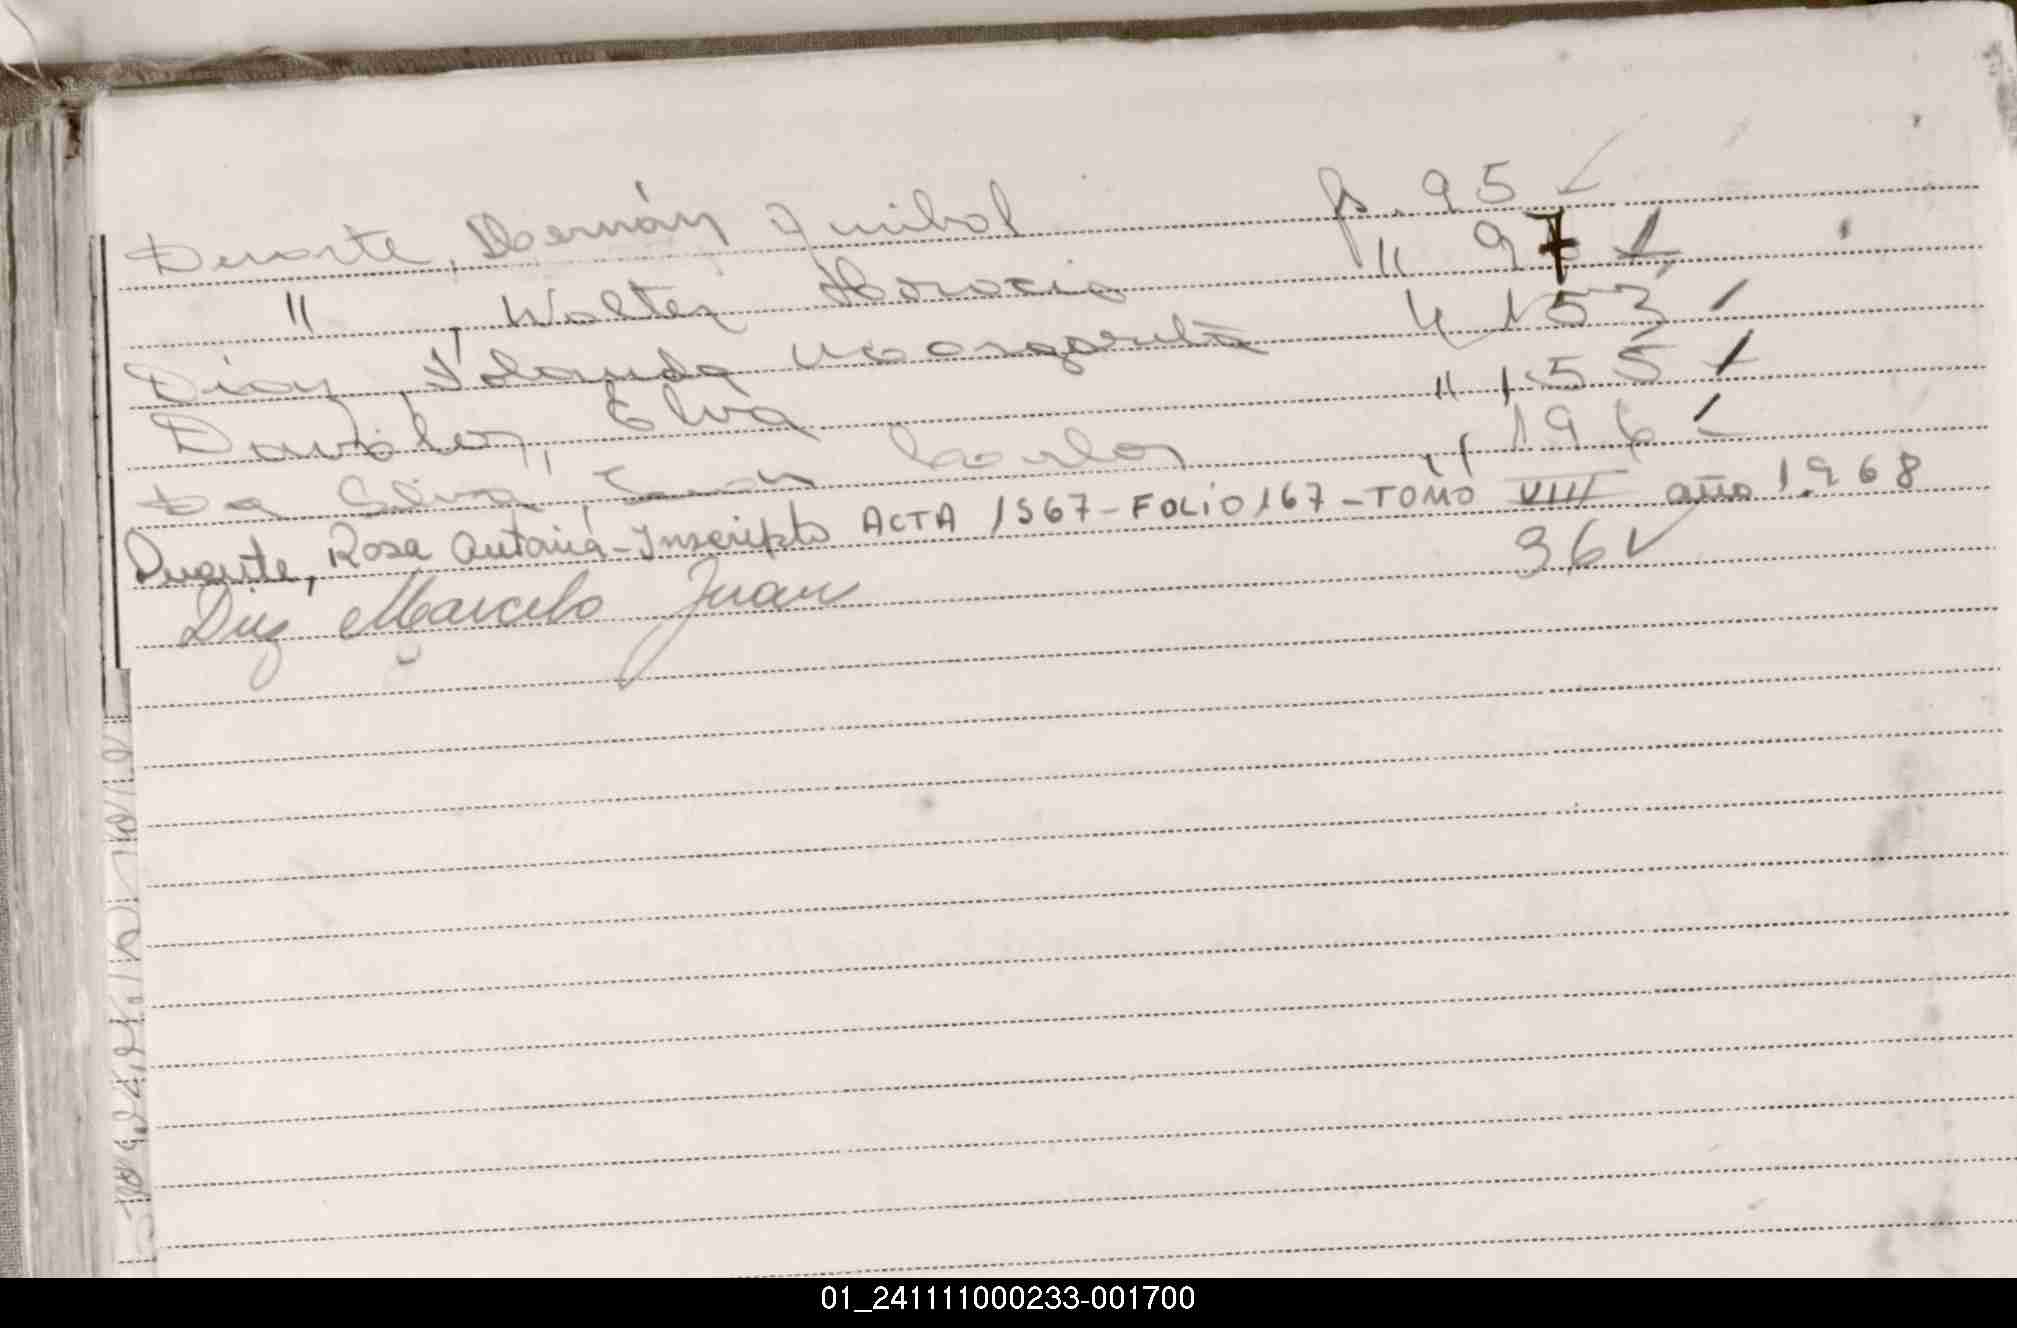 Duarte, Hernán Anibal fs. 95
" , Walter Horacio " 97
Diaz, Yolanda Margarita " 153
Davalos, Elva " 155
Da Silva, Juan Carlos " 196
Duarte, Rosa Antonia - Inscripto ACTA 1567 - FOLIO 167 - TOMO VIII año 1.968
Diaz Marcelo Juan 36
01_241111000233-001700